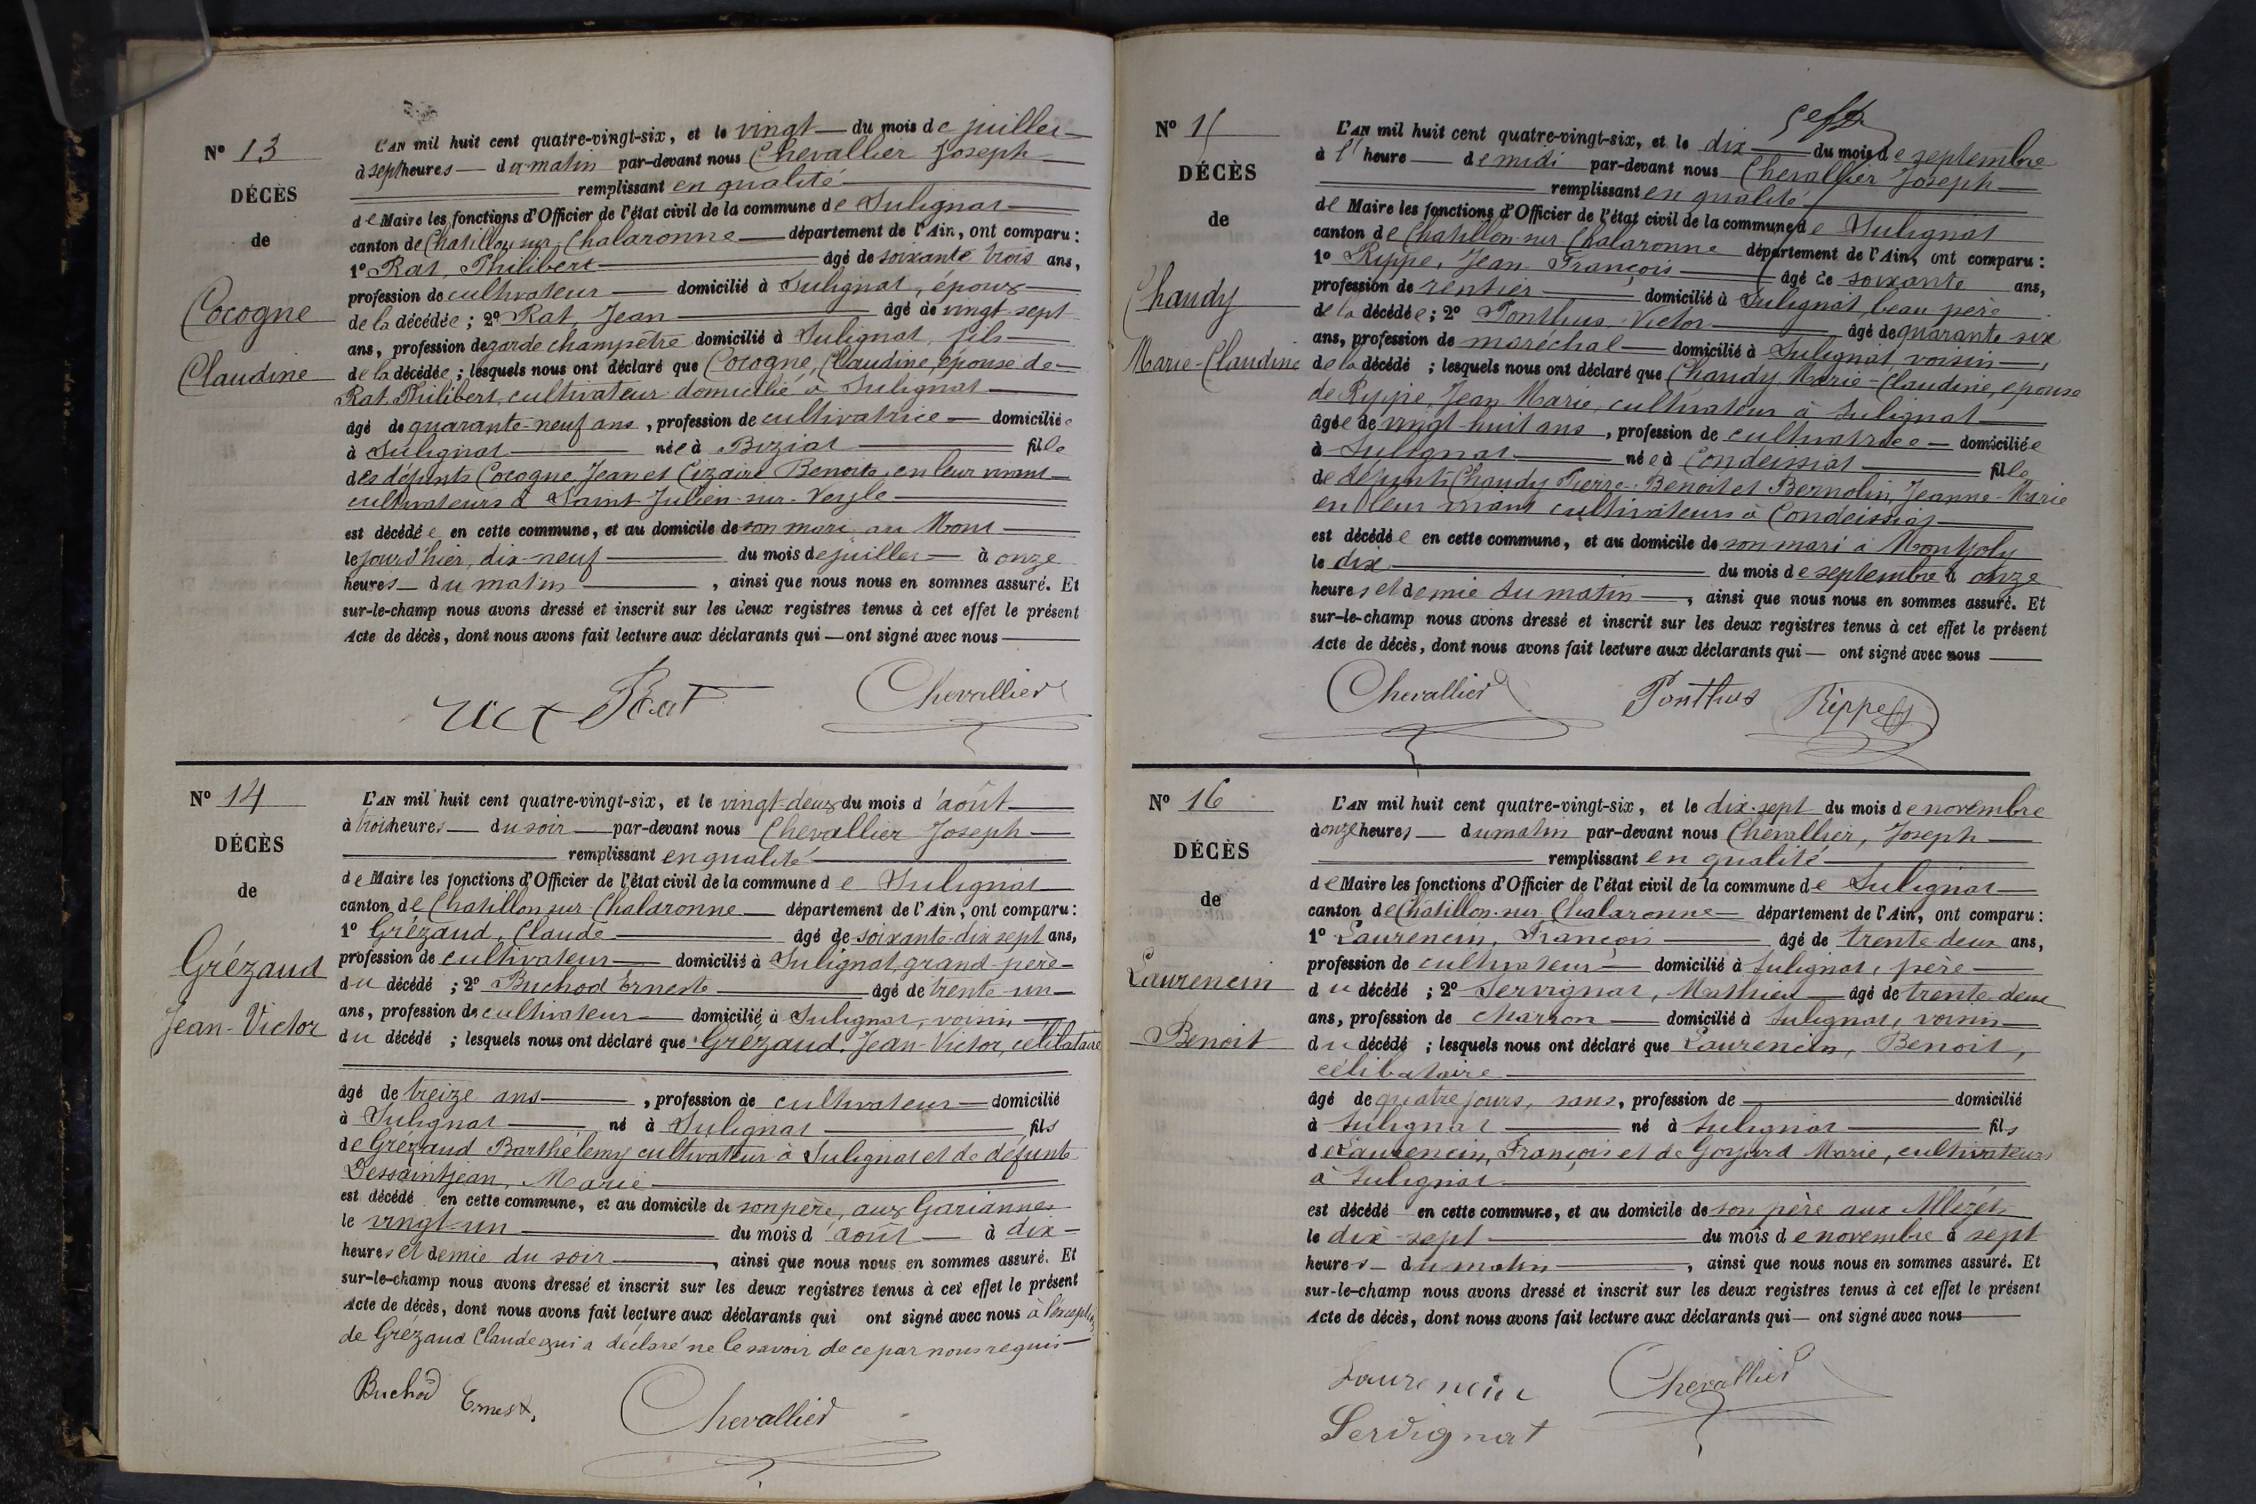 N° 13
DÉCÈS
de
Cocogne
Claudine
L'AN mil huit cent quatre-vingt-six, et le vingt du mois de juillet
à sept heures du matin par-devant nous Chevallier Joseph
remplissant en qualité
de Maire les fonctions d'Officier de l'état civil de la commune de Sulignat
canton de Chatillon sur Chalaronne département de l'Ain, ont comparu :
1° Rat, Philibert âgé de soixante trois ans,
profession de cultivateur domicilié à Sulignat, époux
de la décédée ; 2° Rat, Jean âgé de vingt-sept
ans, profession de garde champêtre domicilié à Sulignat, fils
de la décédée ; lesquels nous ont déclaré que Cocogne, Claudine, épouse de
Rat Philibert, cultivateur domicilié à Sulignat
âgé de quarante-neuf ans, profession de cultivatrice domiciliée
à Sulignat née à Biziat fille
des défunts Cocogne Jean et Cizaire Benoite, en leur vivant
cultivateurs à Saint-Julien-sur-Veyle
est décédée en cette commune, et au domicile de son mari, au Mont
le jourd'hier, dix-neuf du mois de juillet à onze
heures du matin, ainsi que nous nous en sommes assuré. Et
sur-le-champ nous avons dressé et inscrit sur les deux registres tenus à cet effet le présent
Acte de décès, dont nous avons fait lecture aux déclarants qui ont signé avec nous
Rat Chevallier
N° 14
DÉCÈS
de
Grézaud
Jean-Victor
L'AN mil huit cent quatre-vingt-six, et le vingt-deux du mois d'août
à trois heures du soir par-devant nous Chevallier Joseph
remplissant en qualité
de Maire les fonctions d'Officier de l'état civil de la commune de Sulignat
canton de Chatillon sur Chalaronne département de l'Ain, ont comparu :
1° Grézaud, Claude âgé de soixante-dix sept ans,
profession de cultivateur domicilié à Sulignat, grand-père
du décédé ; 2° Buchod Erneste âgé de trente-un
ans, profession de cultivateur domicilié à Sulignat, voisin
du décédé ; lesquels nous ont déclaré que Grézaud, Jean-Victor, célibataire
âgé de treize ans, profession de cultivateur domicilié
à Sulignat né à Sulignat fils
de Grézaud Barthélemy cultivateur à Sulignat et de défunte
Dessaintjean, Marie
est décédé en cette commune, et au domicile de son père, aux Gariannes
le vingt-un du mois d'août à dix
heures et demie du soir, ainsi que nous nous en sommes assuré. Et
sur-le-champ nous avons dressé et inscrit sur les deux registres tenus à cet effet le présent
Acte de décès, dont nous avons fait lecture aux déclarants qui ont signé avec nous à l'exception
de Grézaud Claude qui a déclaré ne le savoir de ce par nous requis
Buchod Ernest. Chevallier
N° 15
DÉCÈS
de
Chaudy
Marie-Claudine
L'AN mil huit cent quatre-vingt-six, et le dix du mois de septembre
à l'heure de midi par-devant nous Chevallier Joseph
remplissant en qualité
de Maire les fonctions d'Officier de l'état civil de la commune de Sulignat
canton de Chatillon-sur Chalaronne département de l'Ain, ont comparu :
1° Rippe, Jean François âgé de soixante ans,
profession de rentier domicilié à Sulignat, beau père
de la décédée ; 2° Ponthus Victor âgé de quarante six
ans, profession de maréchal domicilié à Sulignat voisin
de la décédé ; lesquels nous ont déclaré que Chaudy Marie-Claudine, épouse
de Rippe, Jean Marie, cultivateur à Sulignat
âgée de vingt-huit ans, profession de cultivatrice domiciliée
à Sulignat née à Condeissiat fille
de défunts Chaudy Pierre-Benoit et Bernolin, Jeanne-Marie
en leur vivant cultivateurs à Condeissiat
est décédée en cette commune, et au domicile de son mari à Montjoly
le dix du mois de septembre à onze
heures et demie du matin, ainsi que nous nous en sommes assuré. Et
sur-le-champ nous avons dressé et inscrit sur les deux registres tenus à cet effet le présent
Acte de décès, dont nous avons fait lecture aux déclarants qui ont signé avec nous
Chevallier Ponthus Rippe
N° 16
DÉCÈS
de
Laurencin
Benoit
L'AN mil huit cent quatre-vingt-six, et le dix-sept du mois de novembre
à onze heures du matin par-devant nous Chevallier, Joseph
remplissant en qualité
de Maire les fonctions d'Officier de l'état civil de la commune de Sulignat
canton de Chatillon-sur Chalaronne département de l'Ain, ont comparu :
1° Laurencin, François âgé de trente-deux ans,
profession de cultivateur domicilié à Sulignat, père
du décédé ; 2° Servignat, Mathieu âgé de trente-deux
ans, profession de Marron domicilié à Sulignat, voisin
du décédé ; lesquels nous ont déclaré que Laurencin, Benoit,
célibataire
âgé de quatre jours, sans, profession de domicilié
à Sulignat né à Sulignat fils
de Laurencin, François et de Goyard Marie, cultivateurs
à Sulignat
est décédé en cette commune, et au domicile de son père aux
le dix-sept du mois de novembre à sept
heures du matin, ainsi que nous nous en sommes assuré. Et
sur-le-champ nous avons dressé et inscrit sur les deux registres tenus à cet effet le présent
Acte de décès, dont nous avons fait lecture aux déclarants qui ont signé avec nous
Laurencin Chevallier
Servignat